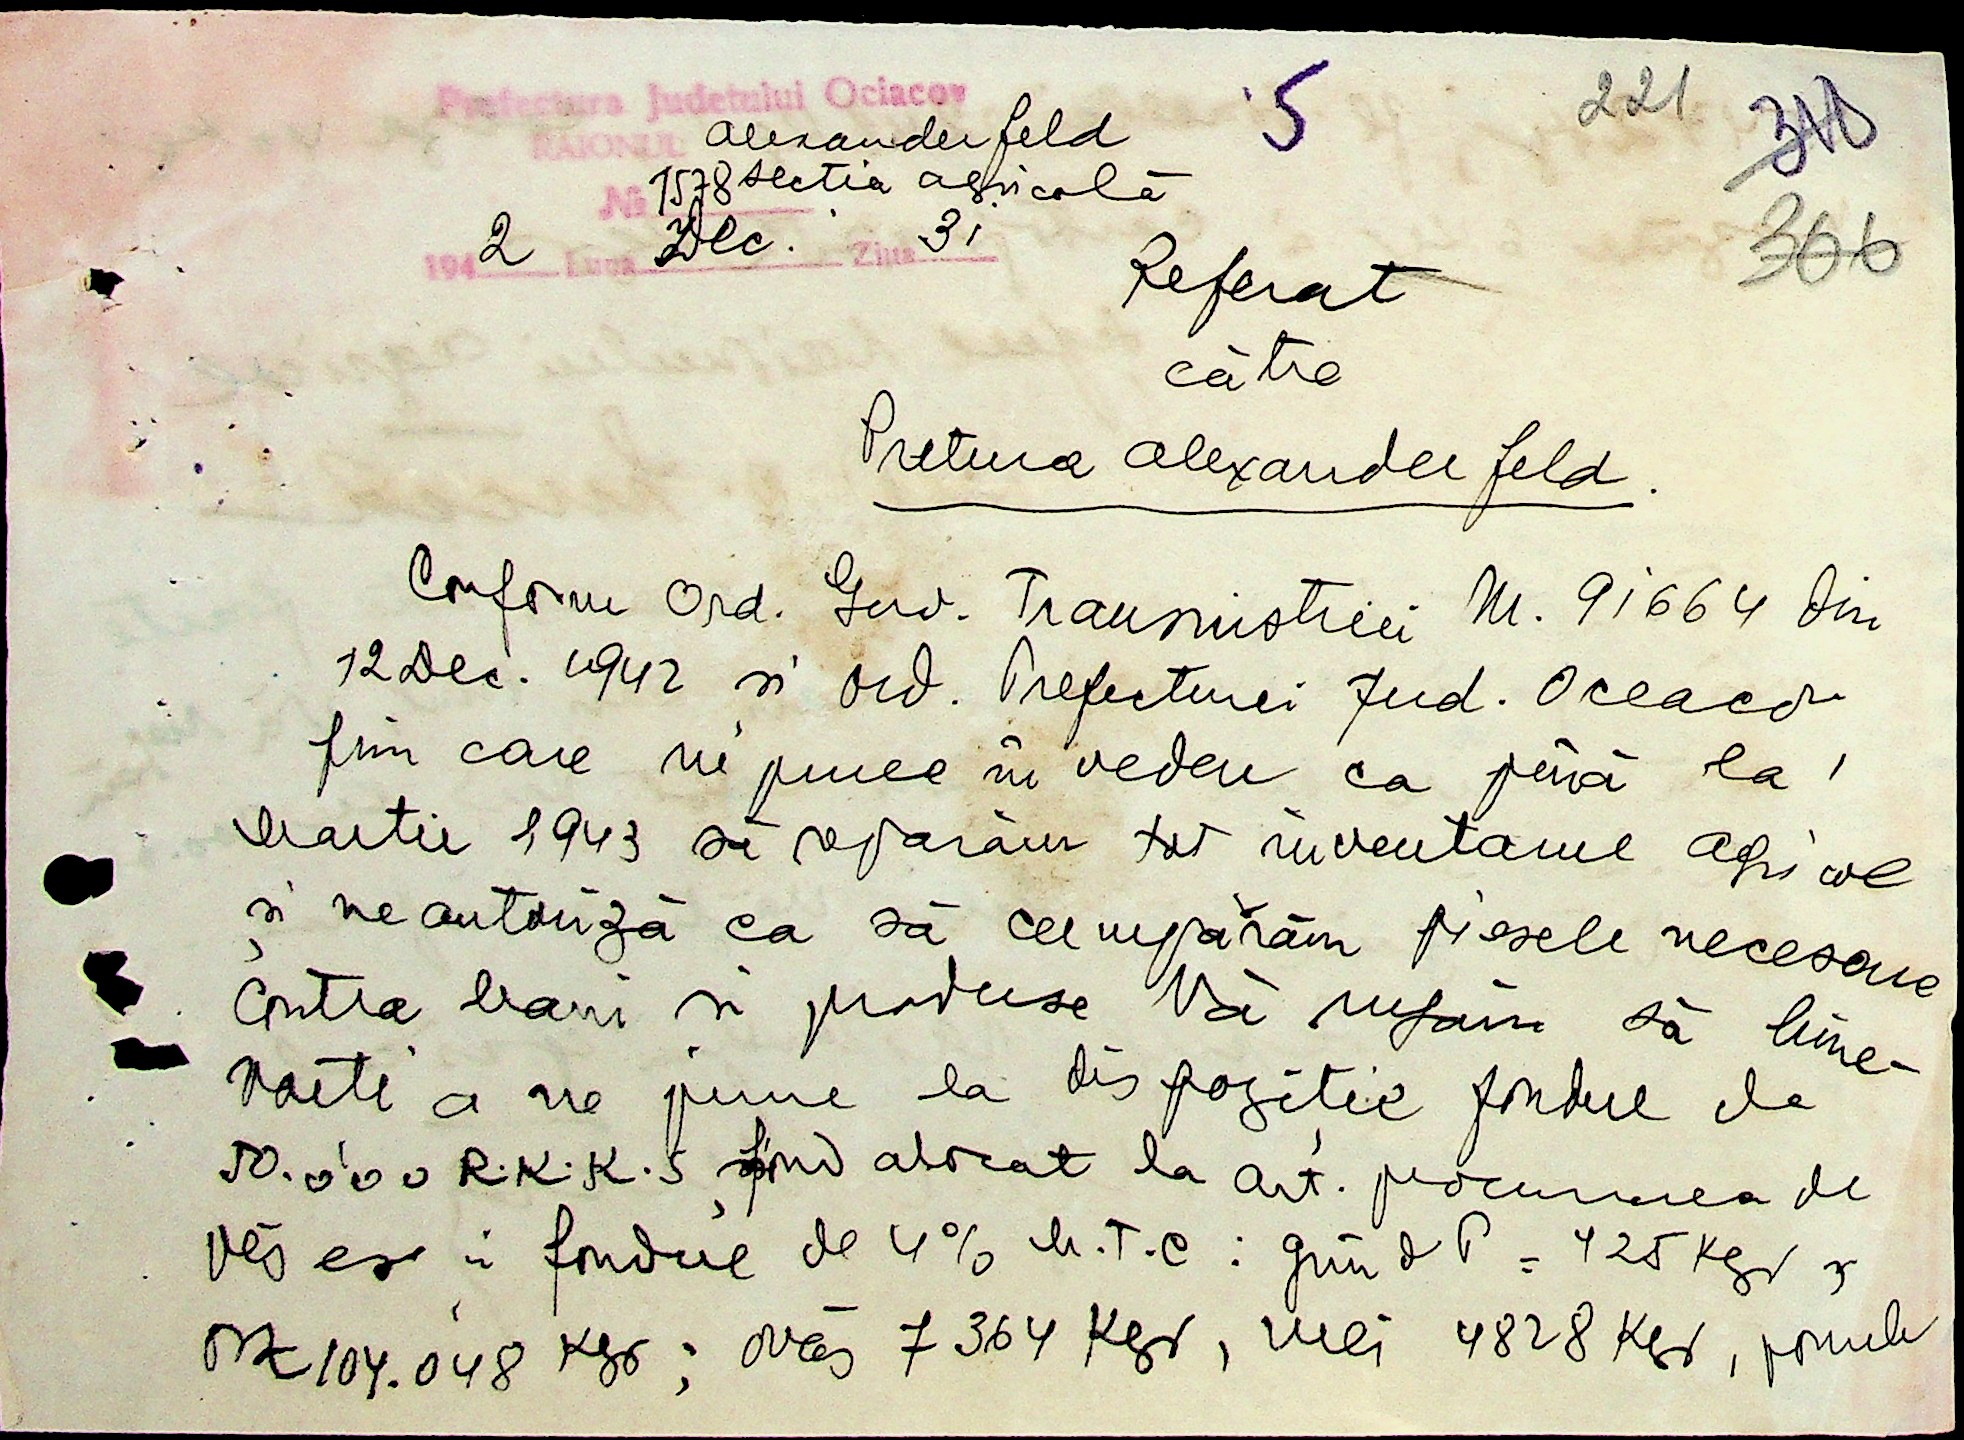 Prefectura Judetului Ociacov
5
221
366
RAIONUL Alexanderfeld
№ 1578 sectia agricolă
1942 Luna Dec. Ziua 31
Referat
cătrе
Pretura Alexanderfeld.
Conform Ord. Guv. Transnistriei Nr. 91664 din
12 Dec. 1942 si Ord. Prefecturei Jud. Oceacov
prin care ni pune în vedere ca pînă la 1
Martie 1943 să reparăm tot inventarul agricol
și ne autoriză ca să cumpărăm piesele necesare
contra bani si produse Vă rugăm să bine-
voiti a ne pune la dispozitie fondul de
50.000 R.K.K.S, fond alocat la art. procurarea de
piese și fondul de 4% M.T.C : grîu d P = 425 Kgr și
104.048 Kgr ; ovăs 7364 Kgr, mei 4828 Kgr, porumb